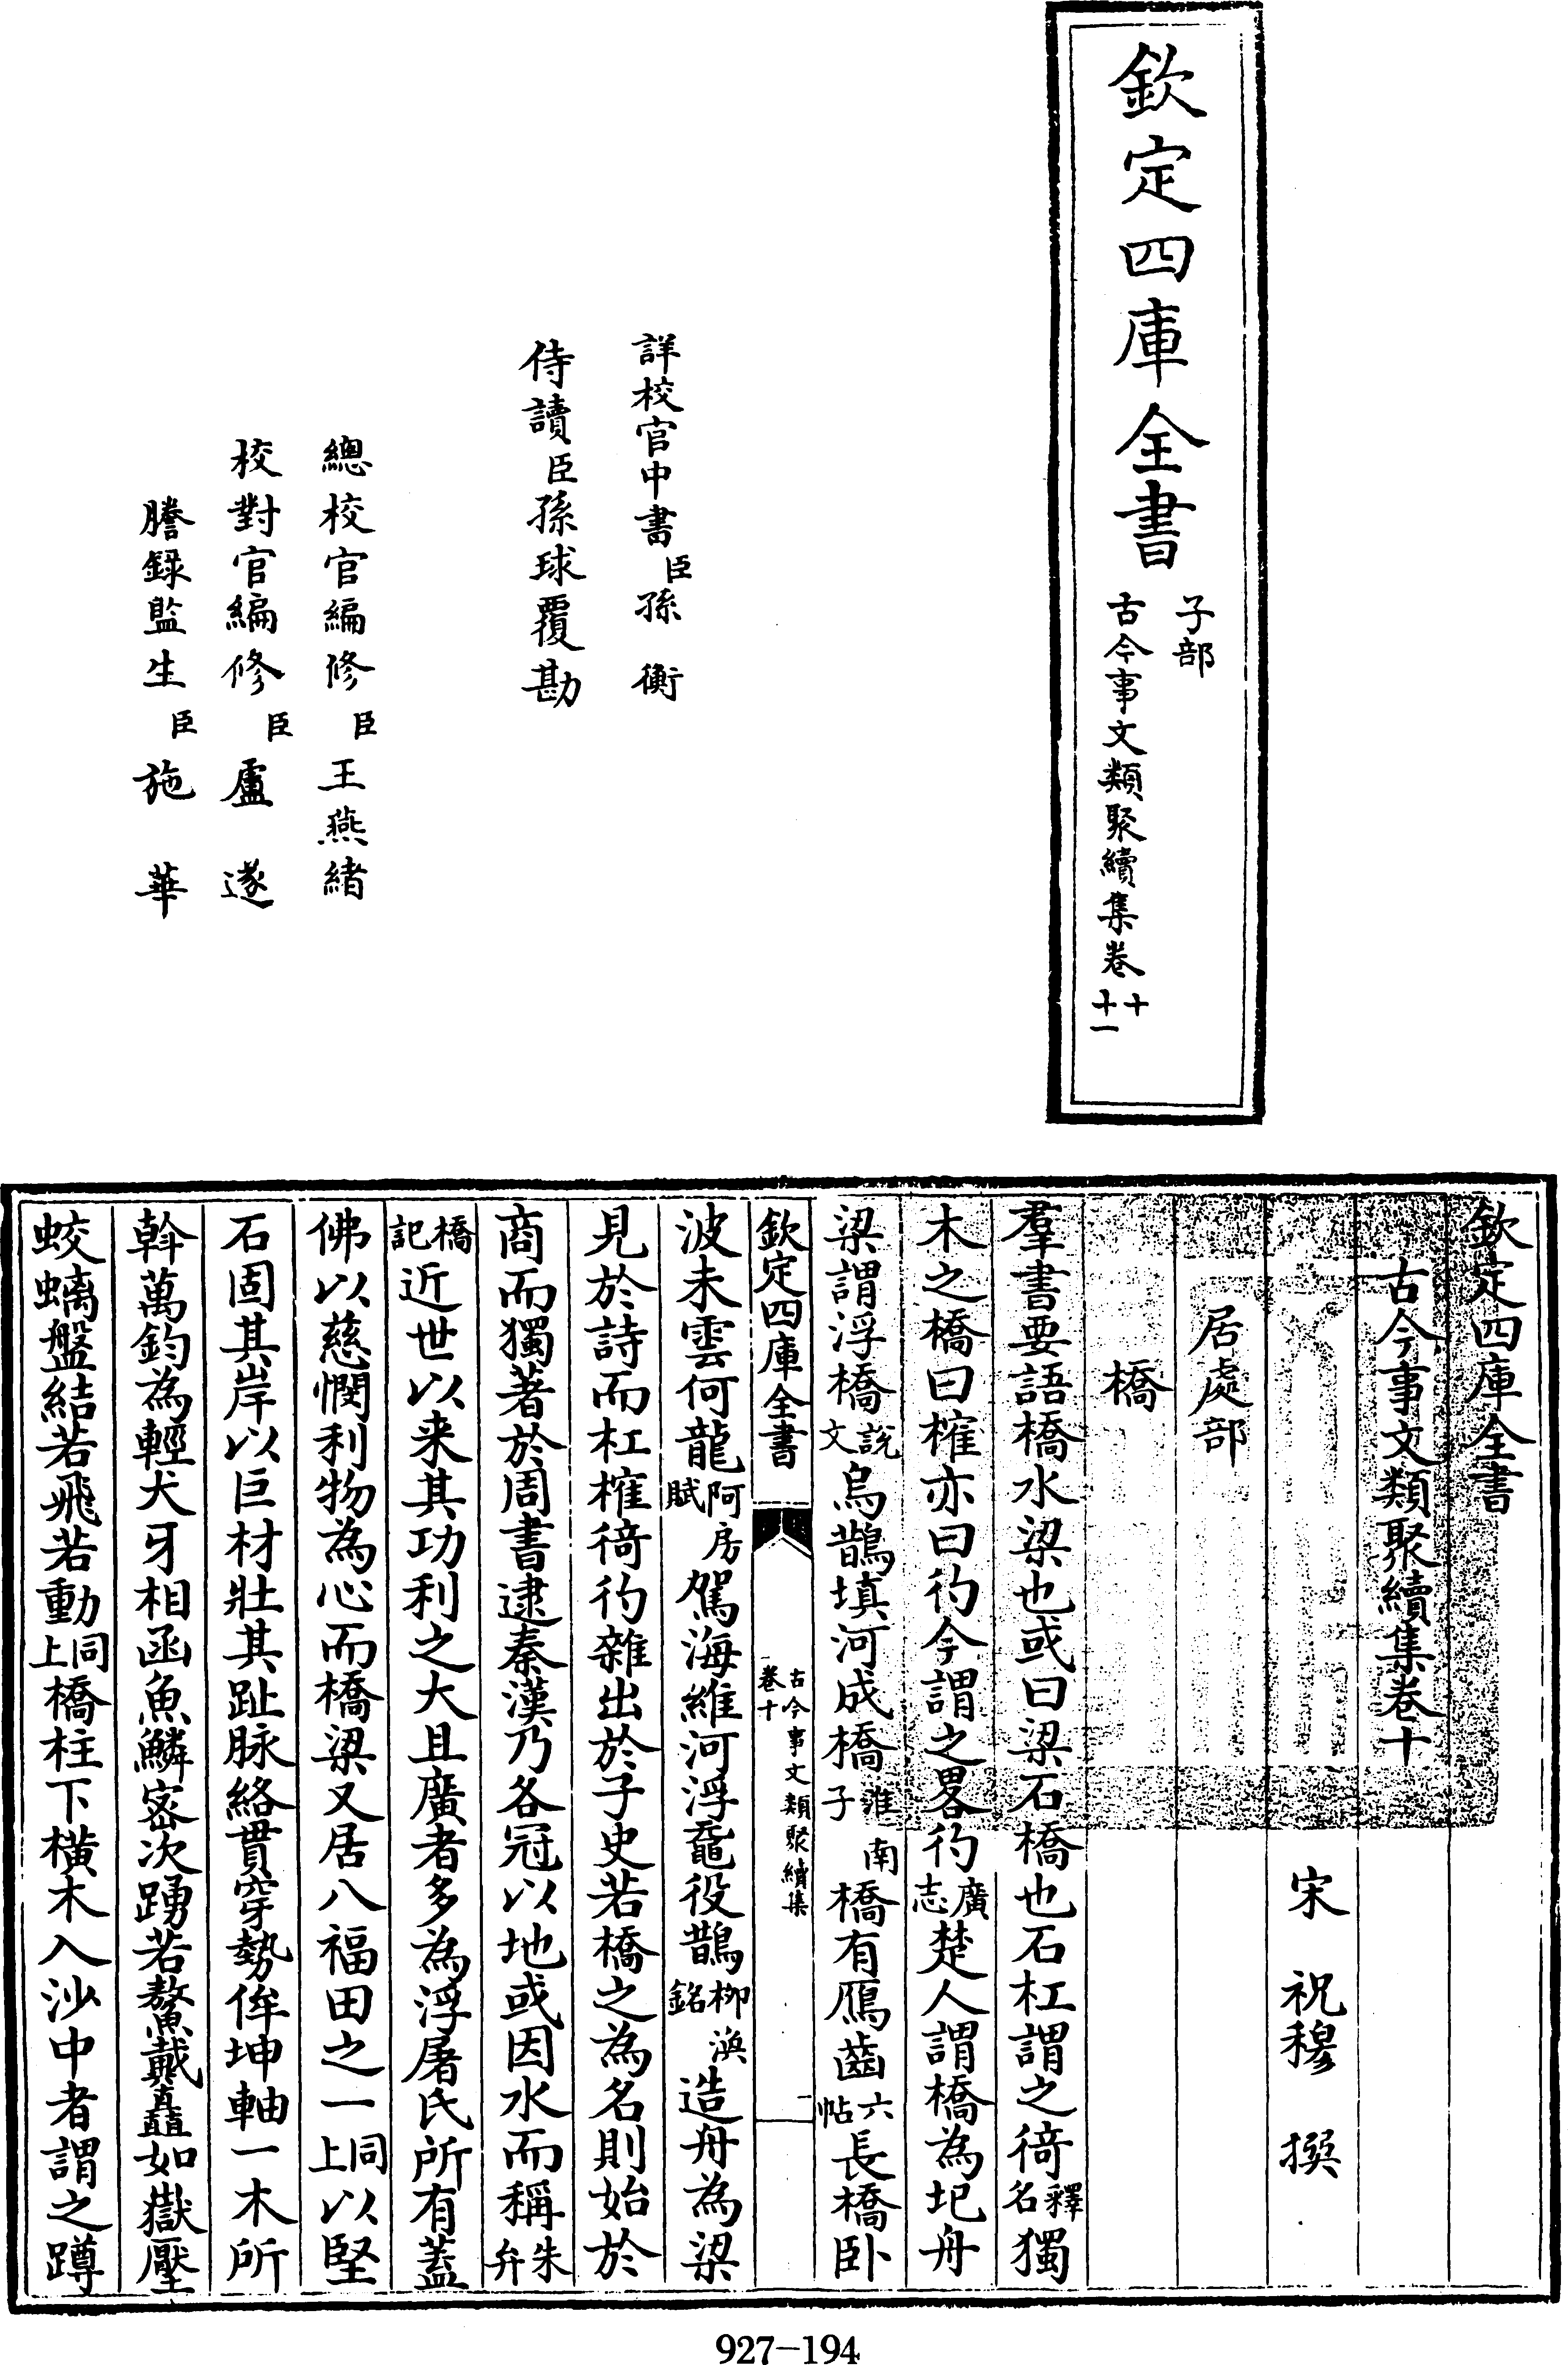 欽定四庫全書
子部
古今事文類聚續集卷十
十一
詳校官中書臣孫衡
侍讀臣孫球覆勘
總校官編修臣王燕緒
校對官編修臣盧遂
謄録監生臣施華
欽定四庫全書
古今事文類聚續集卷十
宋 祝穆 撰
居處部
橋
羣書要語橋水梁也或曰梁石橋也石杠謂之徛釋名獨
木之橋曰榷亦曰彴今謂之畧彴廣志楚人謂橋為圯舟
梁謂浮橋說文烏鵲填河成橋淮南子橋有鴈齒六帖長橋卧
欽定四庫全書
古今事文類聚續集
卷十
一
波未雲何龍阿房賦駕海維河浮黿役鵲柳渙銘造舟為梁
見於詩而杠榷徛彴雜出於子史若橋之為名則始於
商而獨著於周書逮秦漢乃各冠以地或因水而稱朱弁
橋記近世以来其功利之大且廣者多為浮屠氏所有蓋
佛以慈憫利物為心而橋梁又居八福田之一同上以堅
石固其岸以巨材壯其趾脉絡貫穿勢侔坤軸一木所
斡萬鈞為輕犬牙相函魚鱗宻次踴若鰲戴矗如嶽壓
蛟螭盤結若飛若動同上橋柱下横木入沙中者謂之蹲
927-194